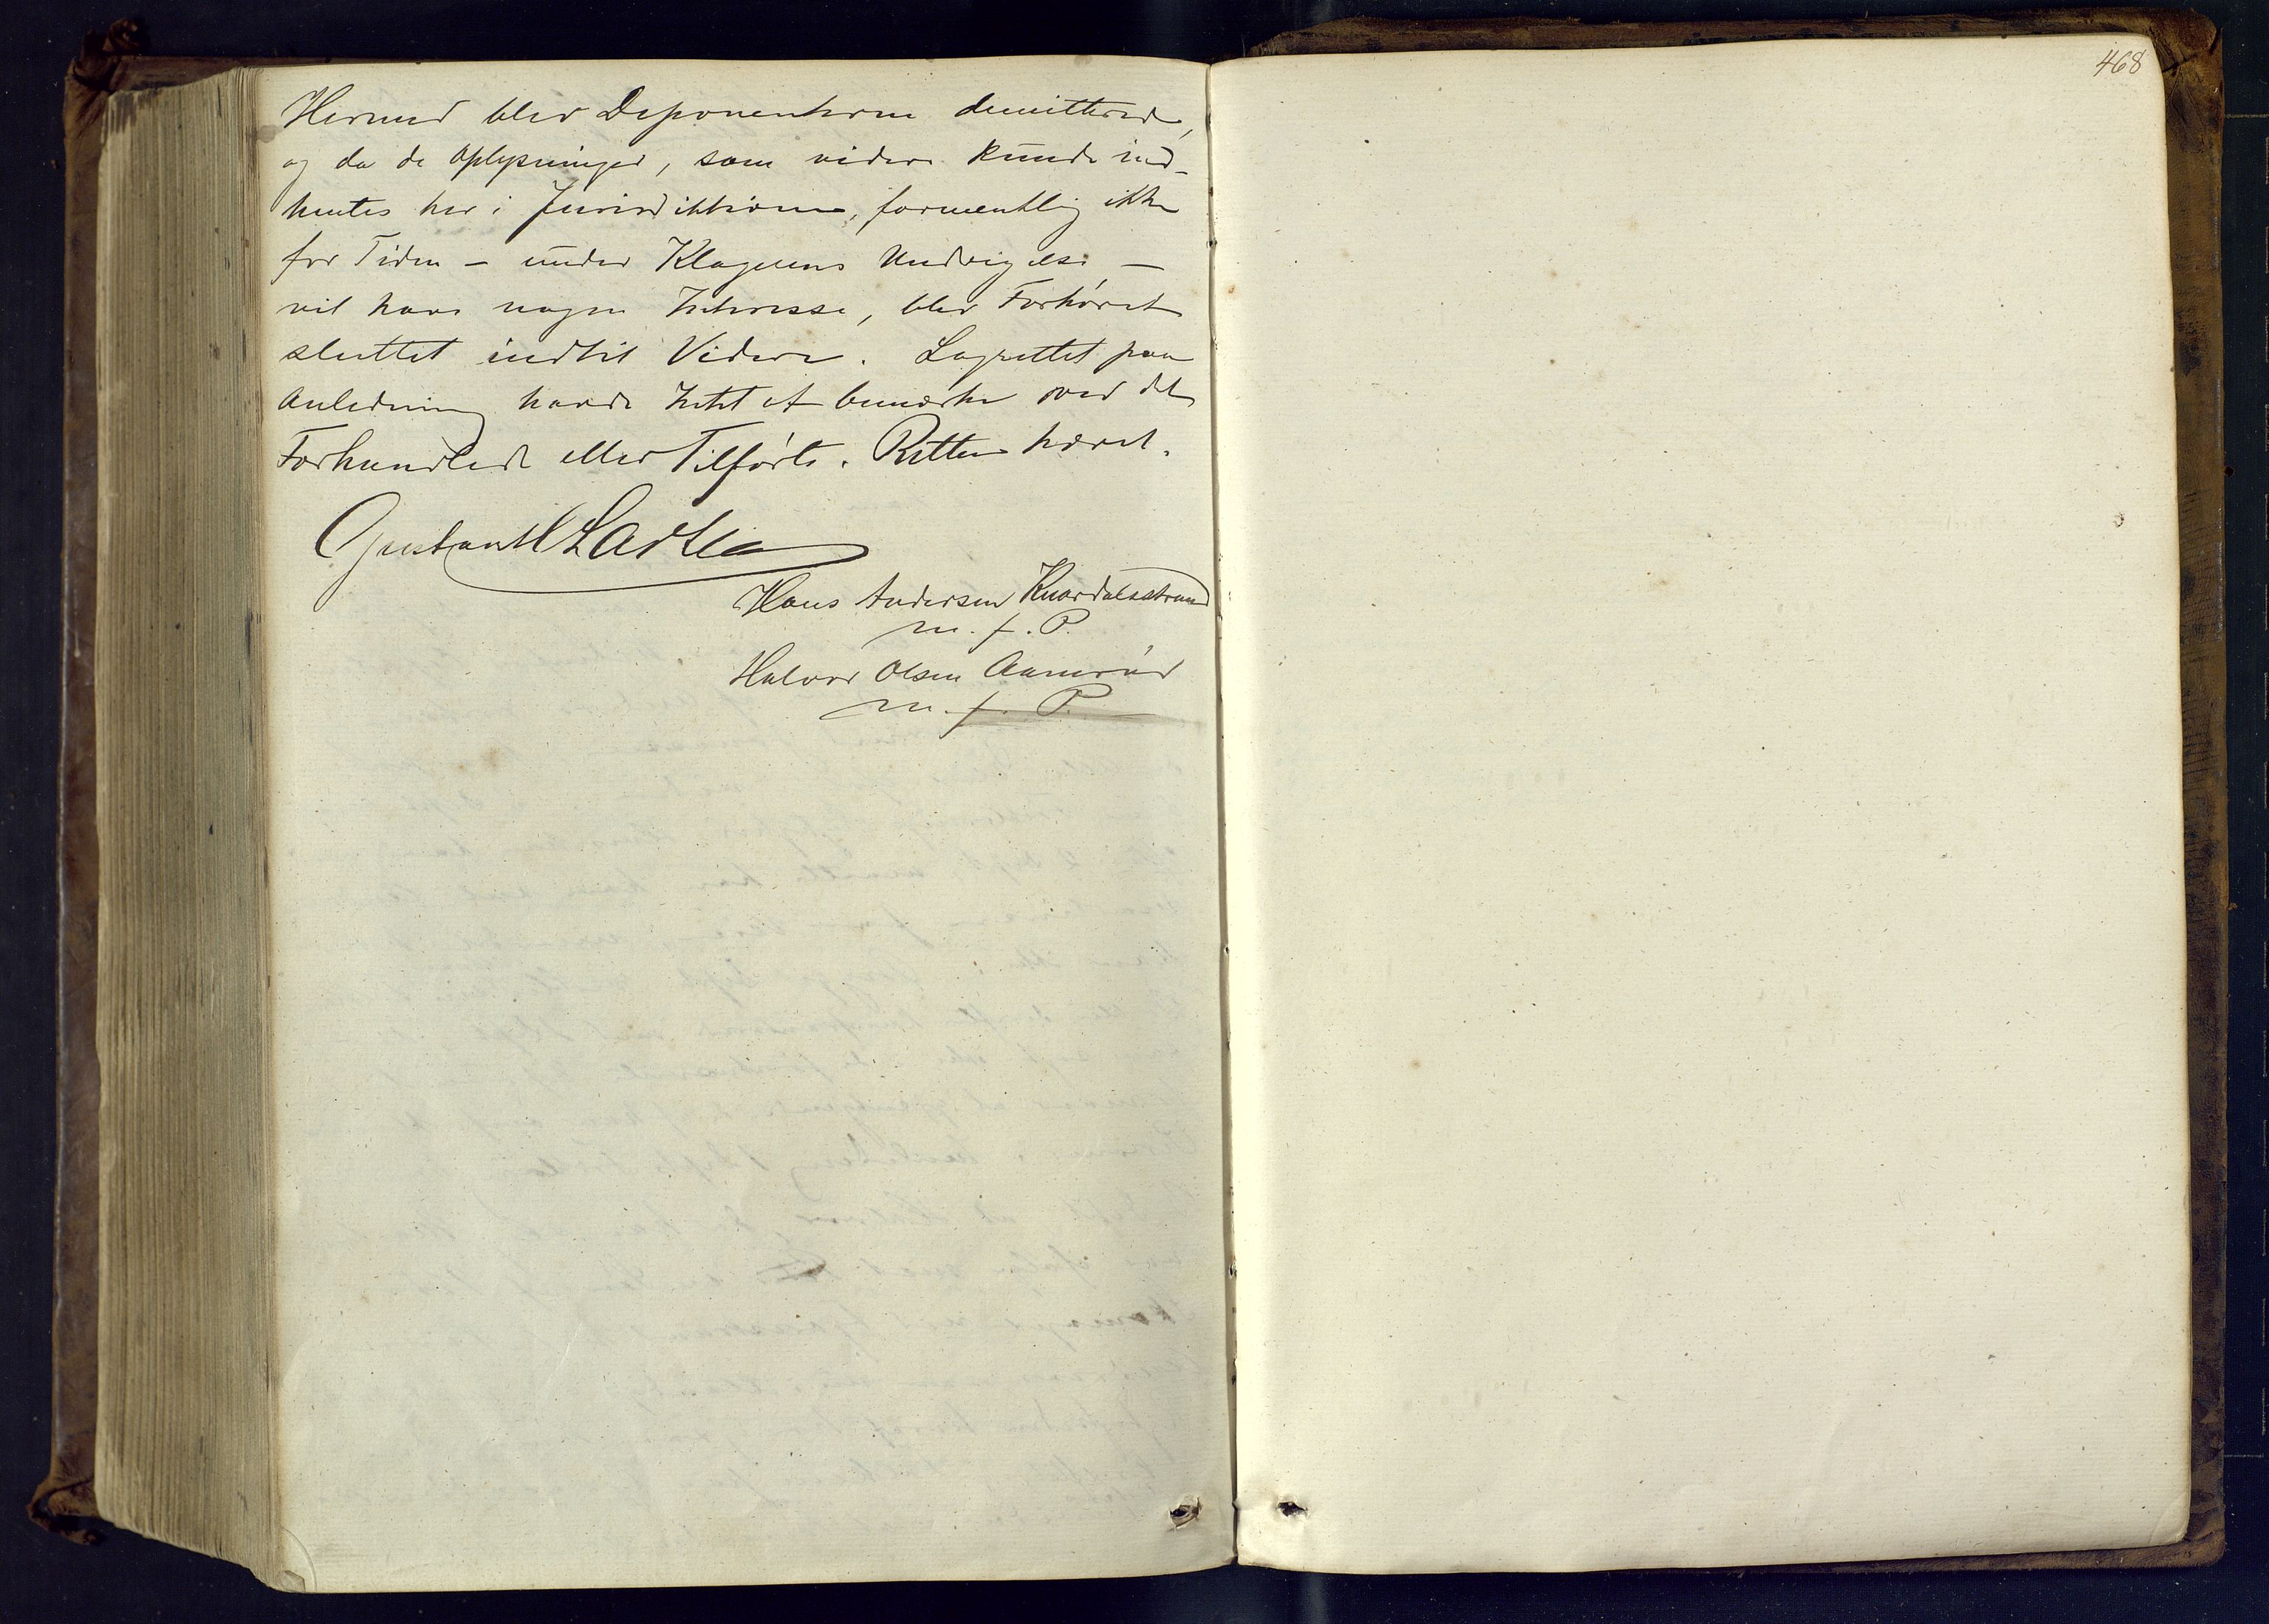 Hermed blev Deponenterne demitterede,
og da de Oplysninger, som videre kunde ind-
hentes her i Jurisdiktionen, formentlig ikke
for Tiden – under Klagerens Undvigelse –
vil have nogen Interesse, blev Forhøret
sluttet indtil Videre. Lagrettet paa
Anledning havde Intet at bemærke ved det
Forhandlede eller Tilførte. Retten hævet.
Hans Andersen Knardalsstrand
m. f. P.
Halvor Olsen
m. f. P.
468